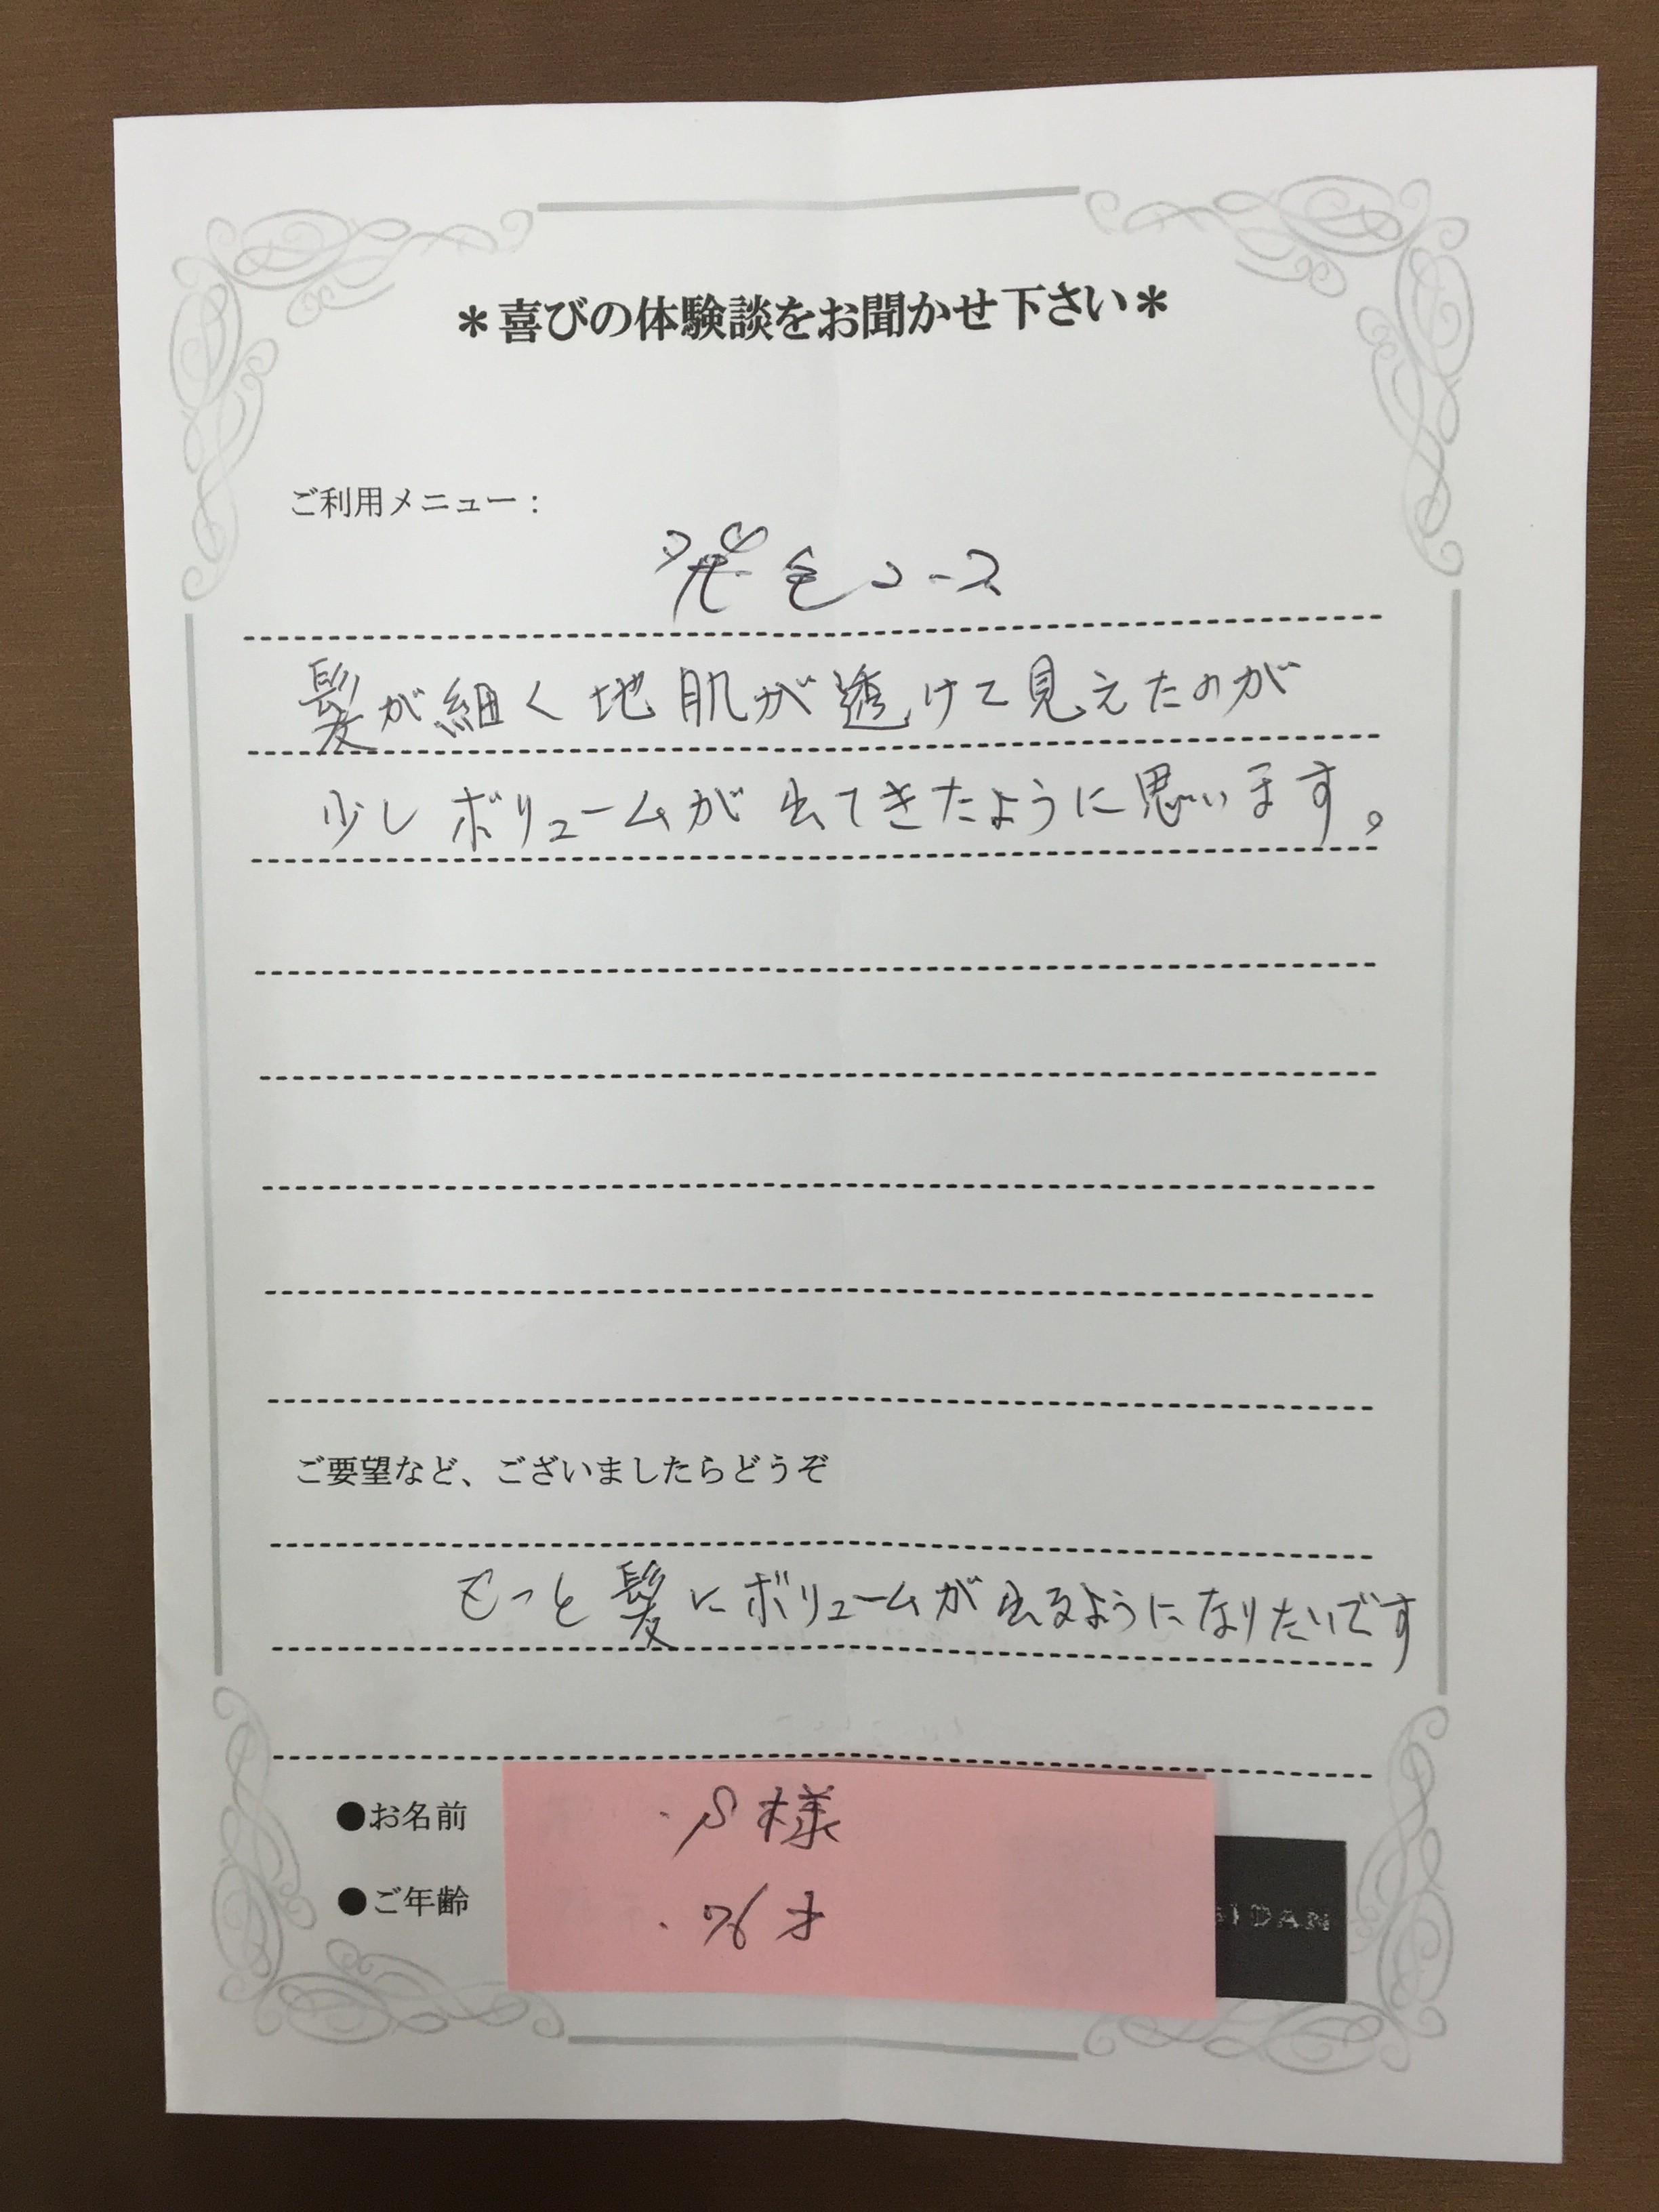 ＊喜びの体験談をお聞かせ下さい＊
ご利用メニュー：
発毛コース
髪が細く地肌が透けて見えたのが
少しボリュームが出てきたように思います。
ご要望など、ございましたらどうぞ
もっと髪にボリュームが出るようになりたいです
●お名前
・S様
●ご年齢
・76才
IDAN